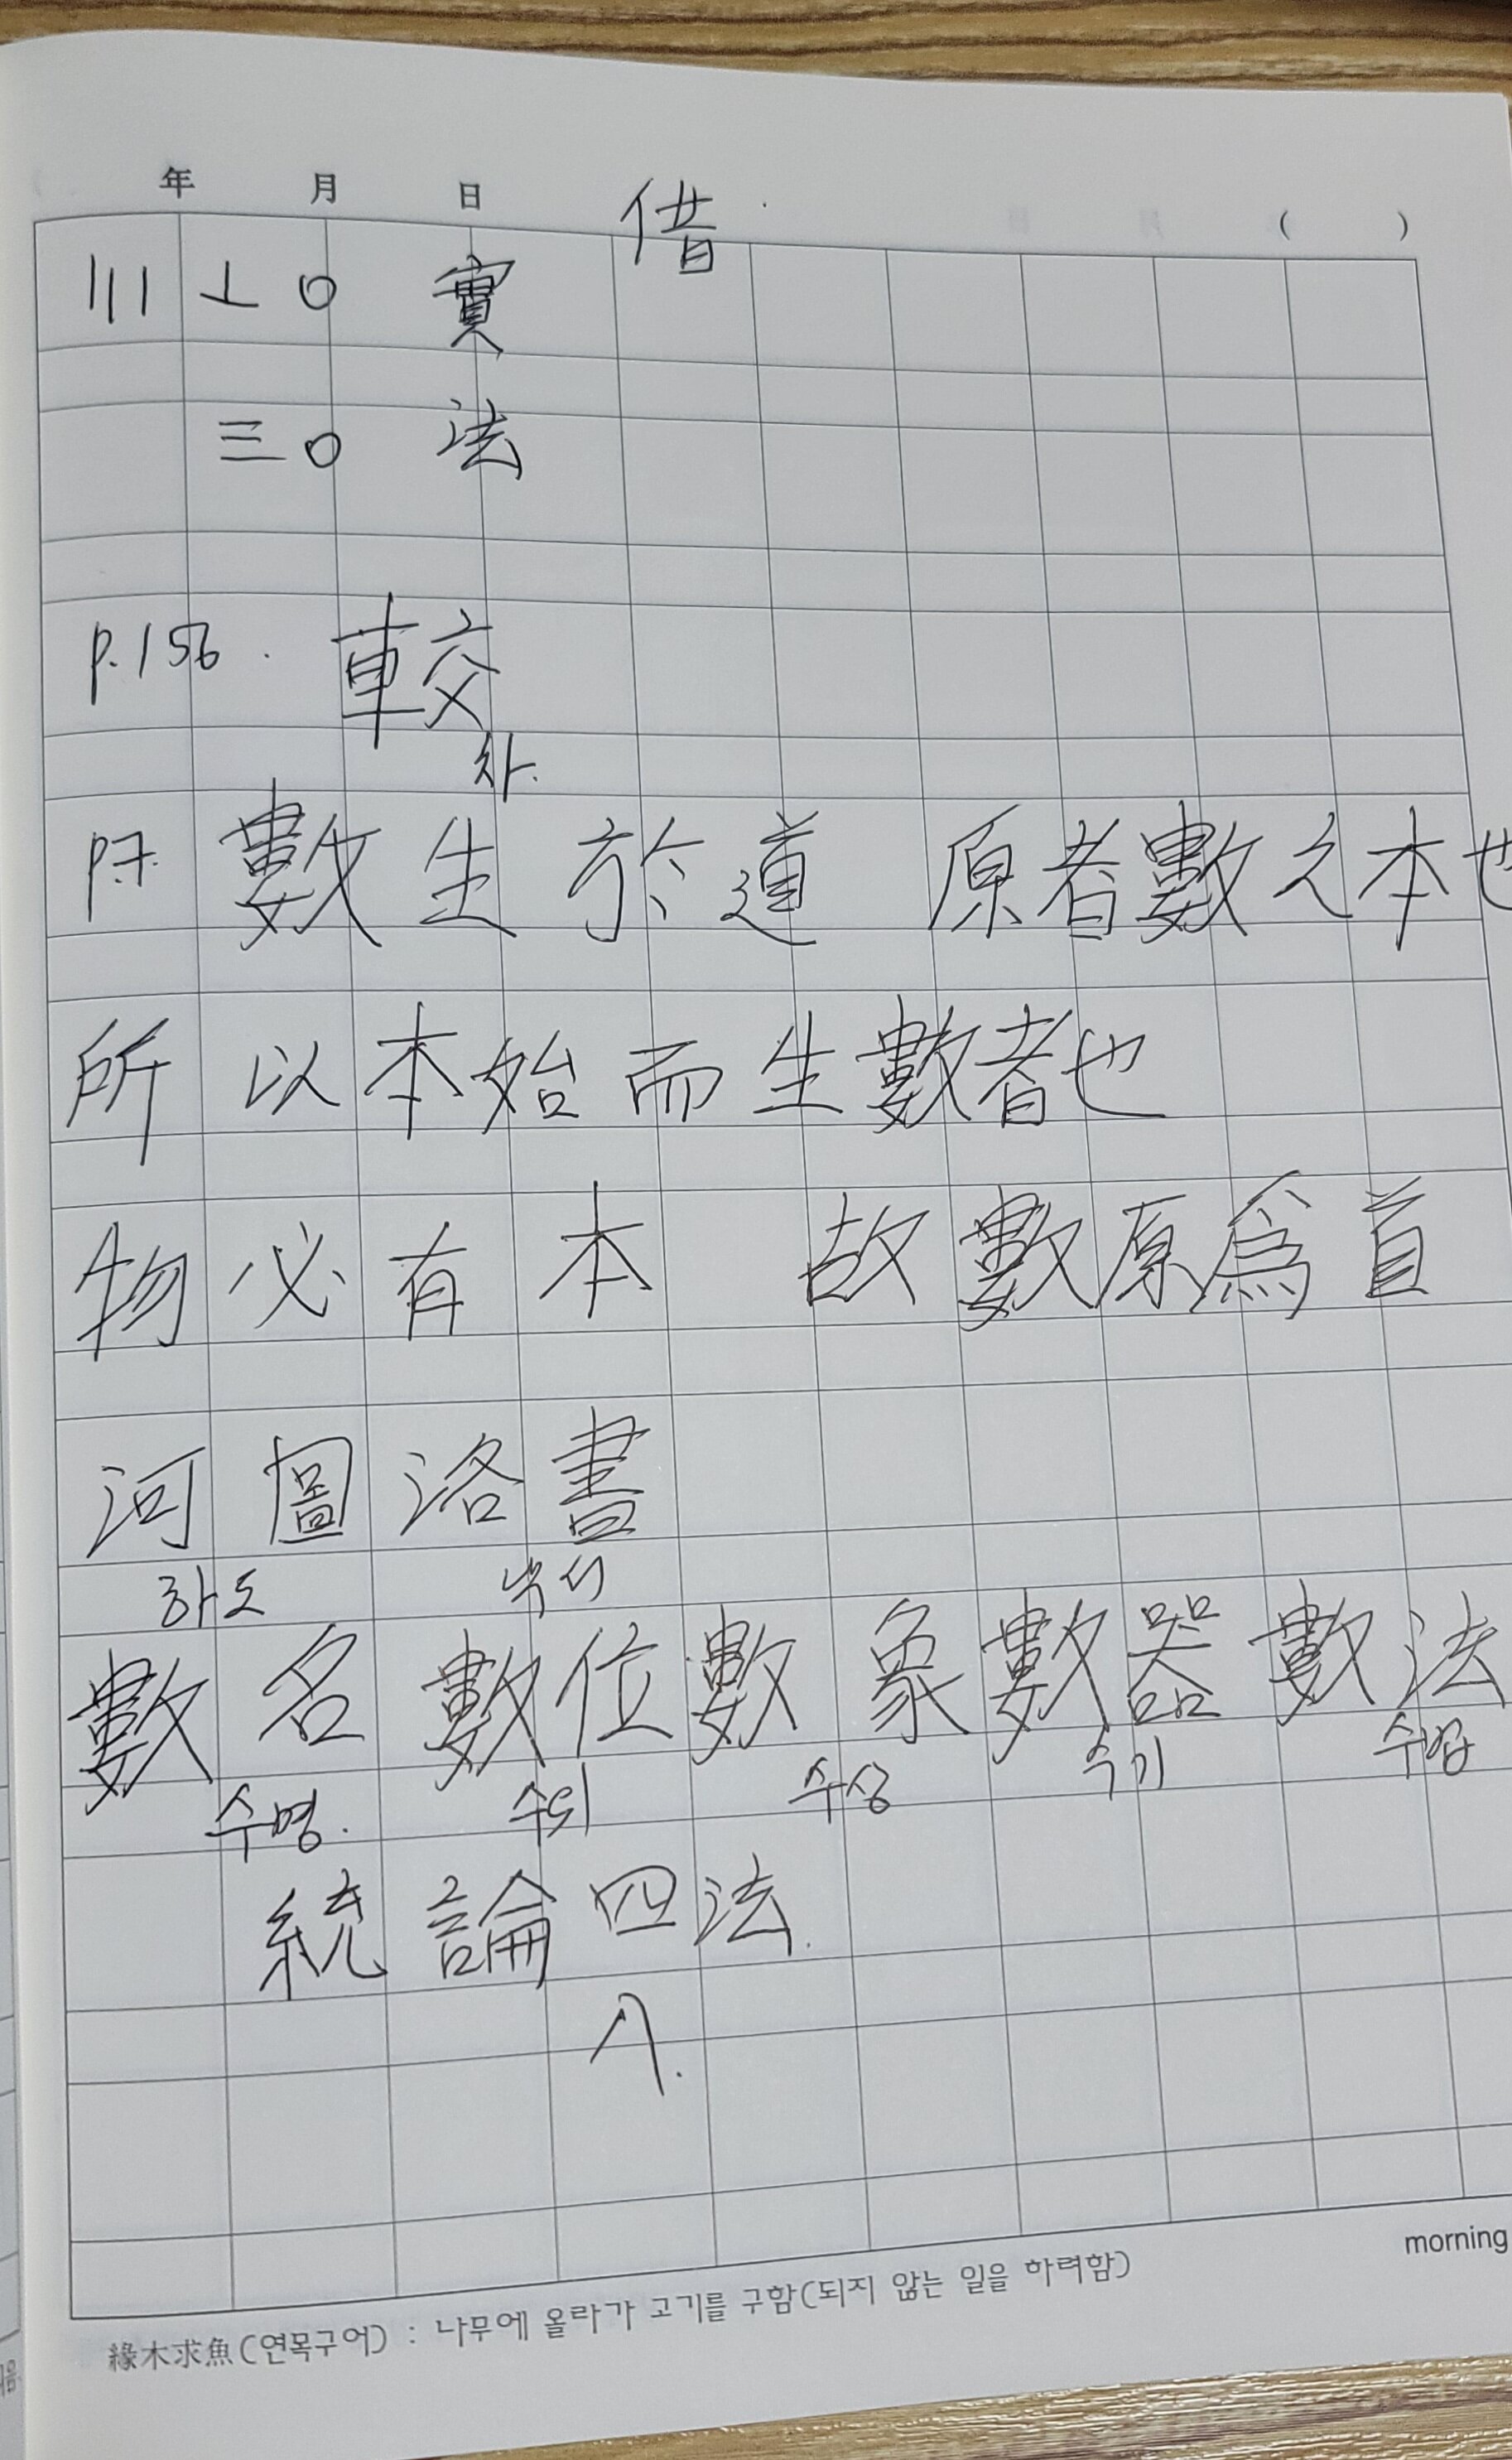 年 月 日 借 ( )
||| ㅗ ○ 實
三 ○ 法
p.156. 較
차.
p.7. 數生於道 原者數之本也
所以本始而生數者也
物必有本 故數原爲首
河圖洛書
하도 낙서
數名數位數象數器數法
수명. 수위 수상 수기 수법
統論四法.
사.
緣木求魚(연목구어) : 나무에 올라가 고기를 구함(되지 않는 일을 하려함)
morning